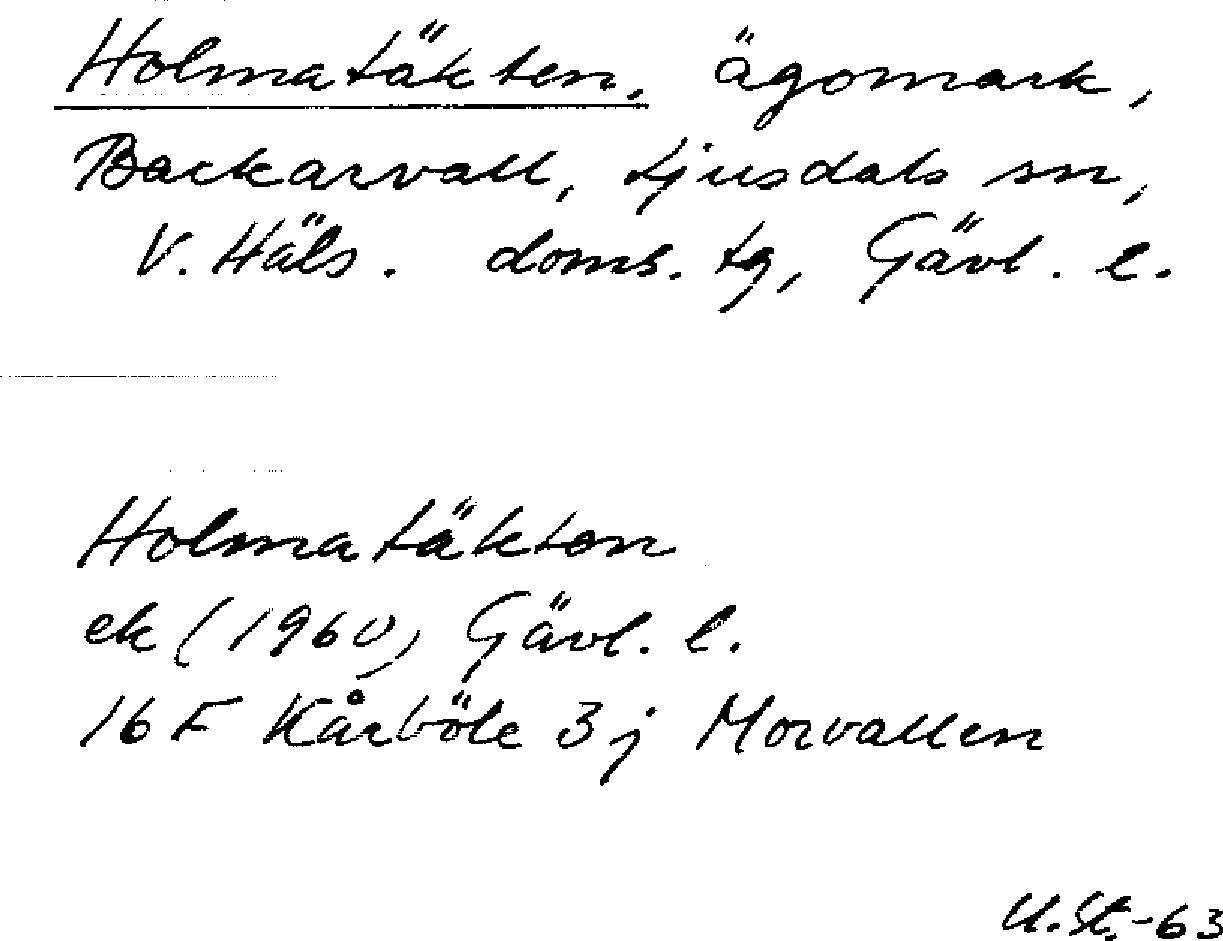 Holmatäkten, ägomark,
Backarvall, Ljusdals sn,
V. Häls. doms. tg, Gävl. l.
Holmatäkten
ek (1960) Gävl. l.
16 F Kårböle 3 j Morvallen
U.St.-63